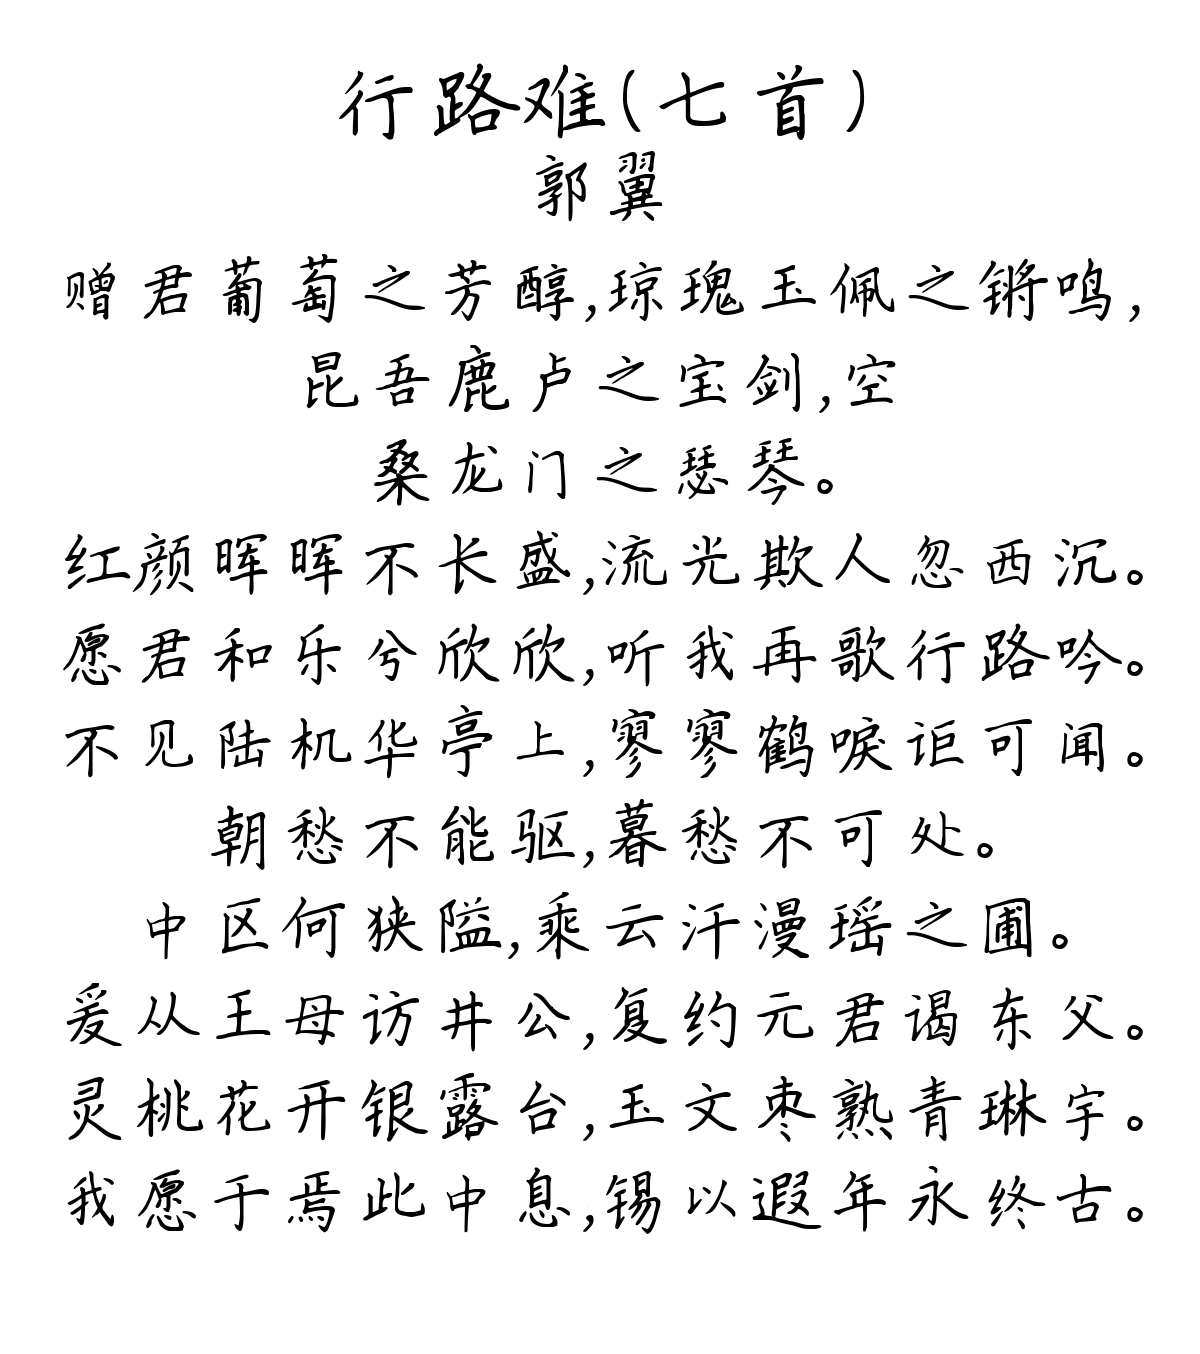 行路难(七首)
郭翼
赠君葡萄之芳醇,琼瑰玉佩之锵鸣,
昆吾鹿卢之宝剑,空
桑龙门之瑟琴。
红颜晖晖不长盛,流光欺人忽西沉。
愿君和乐兮欣欣,听我再歌行路吟。
不见陆机华亭上,寥寥鹤唳讵可闻。
朝愁不能驱,暮愁不可处。
中区何狭隘,乘云汗漫瑶之圃。
爰从王母访井公,复约元君谒东父。
灵桃花开银露台,玉文枣熟青琳宇。
我愿于焉此中息,锡以遐年永终古。